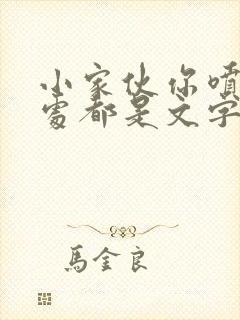 小家伙你噴
處都是文字
馬金良